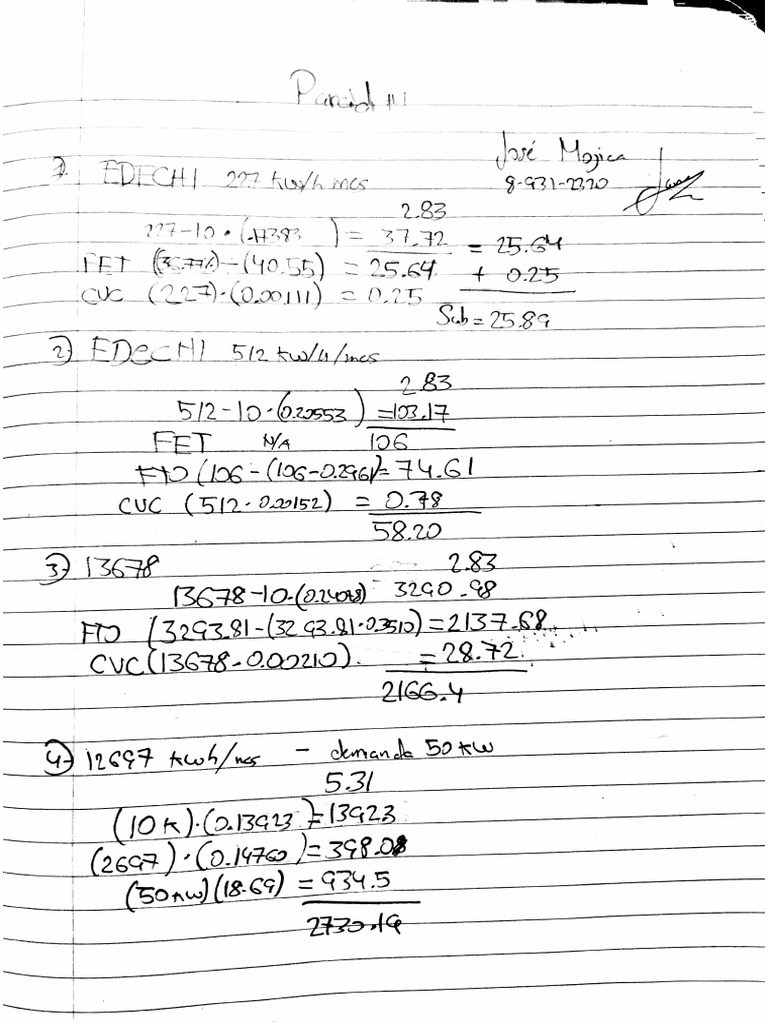 Parcial #1
José Mojica
8-931-2320
1. EDECHI 227 kw/h mes
2.83
227-10 · (.17383) = 37.72 = 25.64
FET (36.77%) - (40.55) = 25.64 + 0.25
CVC (227)·(0.00111) = 0.25
Sub = 25.89
2) EDECHI 512 kw/h/mes
2.83
512-10·(0.20553) =103.17
FET N/A 106
FTO (106-(106-0.296)=74.61
CVC (512·0.00152) = 0.78
58.20
3) 13678
2.83
13678-10·(0.24078) = 3290.98
FTO (3293.81-(3293.81·0.3510)=2137.68
CVC(13678-0.00210). =28.72
2166.4
4) 12697 kwh/mes - demanda 50 kw
5.31
(10k)·(0.13923)=13923
(2697)·(0.14760)=398.08
(50kw)(18.69) =934.5
2730.19